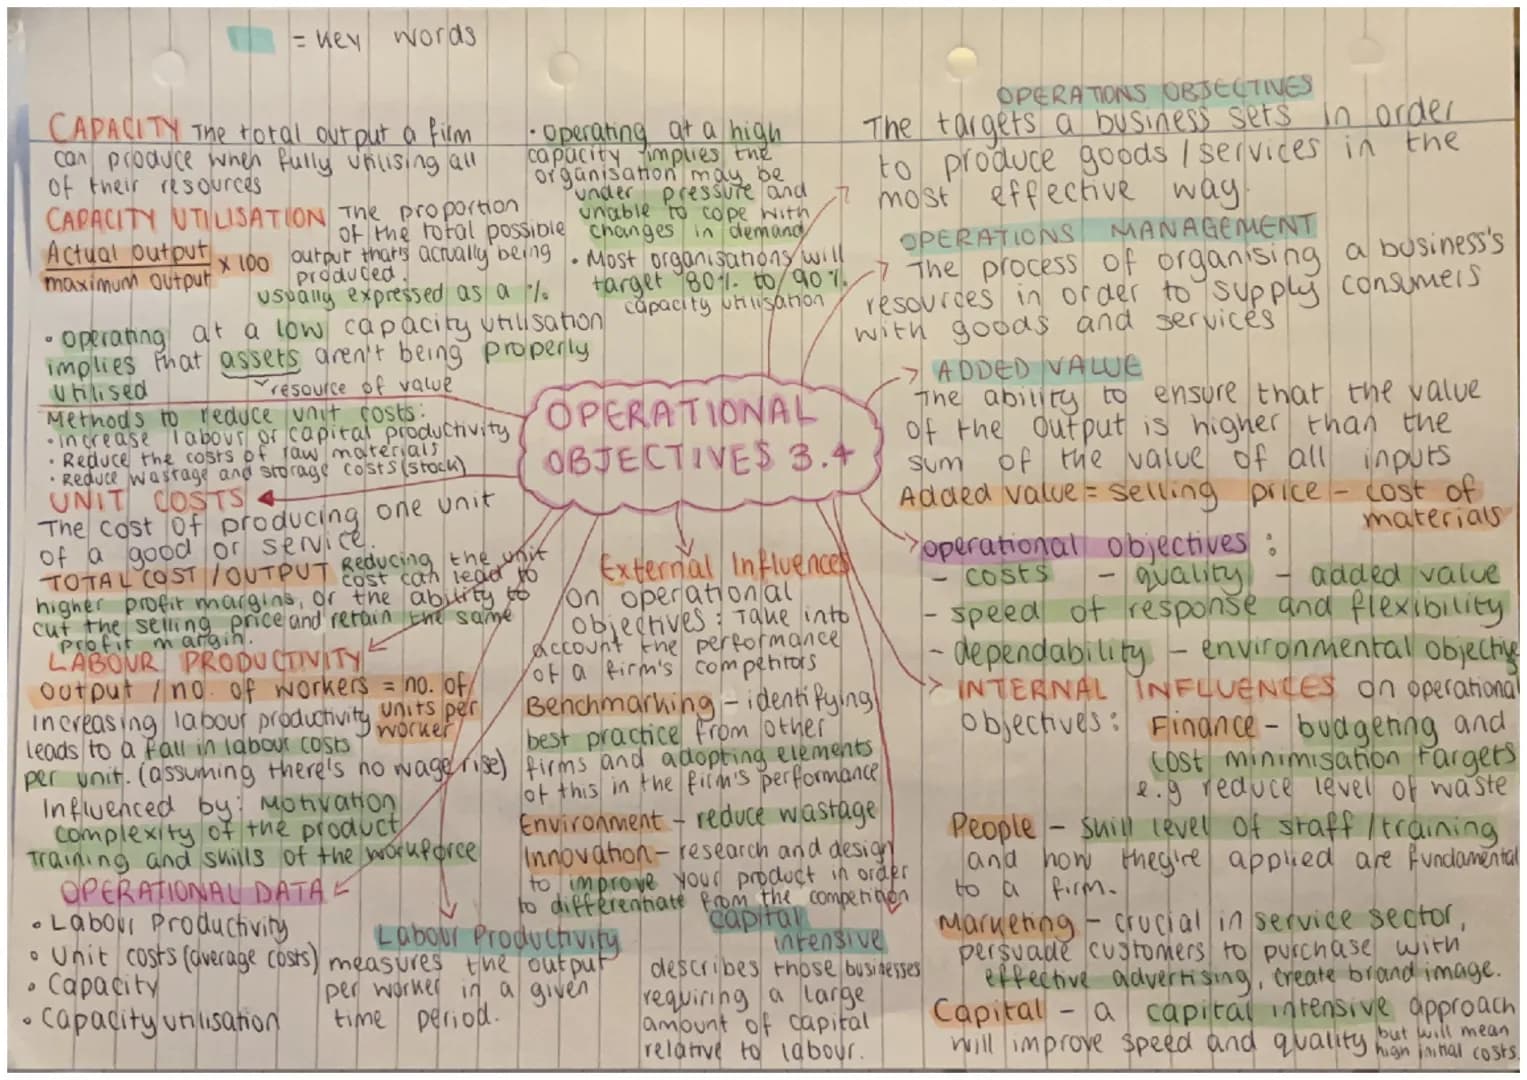 = Key words
CAPACITY The total output a firm
can produce when fully utilising all
of their resources
CAPACITY UTILISATION The proportion
of the total possible
Actual output
maximum output × 100
output that's actually being
produced.
usually expressed as a %
• Operating at a low capacity utilisation
implies that assets aren't being properly
utilised
resource of value
• Operating at a high
capacity implies the
organisation may be
under pressure and
unable to cope with
changes in demand
• Most organisations will
target 80% to 90%
capacity utilisation
Methods to reduce unit costs:
• increase labour or capital productivity
• Reduce the costs of raw materials
• Reduce wastage and storage costs (stock)
UNIT COSTS
The cost of producing one unit
of a good or service.
TOTAL COST / OUTPUT Reducing the unit
cost can lead to
higher profit margins, or the ability to
cut the selling price and retain the same
profit margin.
LABOUR PRODUCTIVITY
output / no. of workers = no. of
units per
worker
increasing labour productivity
leads to a fall in labour costs
per unit. (assuming there's no wage rise)
Influenced by: Motivation
complexity of the product
Training and skills of the workforce
OPERATIONAL DATA
• Labour Productivity
• Unit costs (average costs)
• Capacity
• Capacity utilisation
Labour Productivity
measures the output
per worker in a given
time period.
OPERATIONAL
OBJECTIVES 3.4
External Influences
on operational
objectives: Take into
account the performance
of a firm's competitors
Benchmarking – identifying
best practice from other
firms and adopting elements
of this in the firm's performance
Environment – reduce wastage
Innovation – research and design
to improve your product in order
to differentiate from the competition
Capital
intensive
describes those businesses
requiring a large
amount of capital
relative to labour.
OPERATIONS OBJECTIVES
The targets a business sets in order
to produce goods / services in the
most effective way.
OPERATIONS MANAGEMENT
The process of organising a business's
resources in order to supply consumers
with goods and services
ADDED VALUE
The ability to ensure that the value
of the output is higher than the
sum of the value of all inputs
Added value = selling price – cost of
materials
Operational objectives:
– costs – quality – added value
– speed of response and flexibility
– dependability – environmental objective
INTERNAL INFLUENCES on operational
objectives: Finance – budgeting and
cost minimisation targets
e.g reduce level of waste
People – skill level of staff / training
and how they're applied are fundamental
to a firm.
Marketing – crucial in service sector,
persuade customers to purchase with
effective advertising, create brand image.
Capital – a capital intensive approach
will improve speed and quality but will mean
high initial costs.